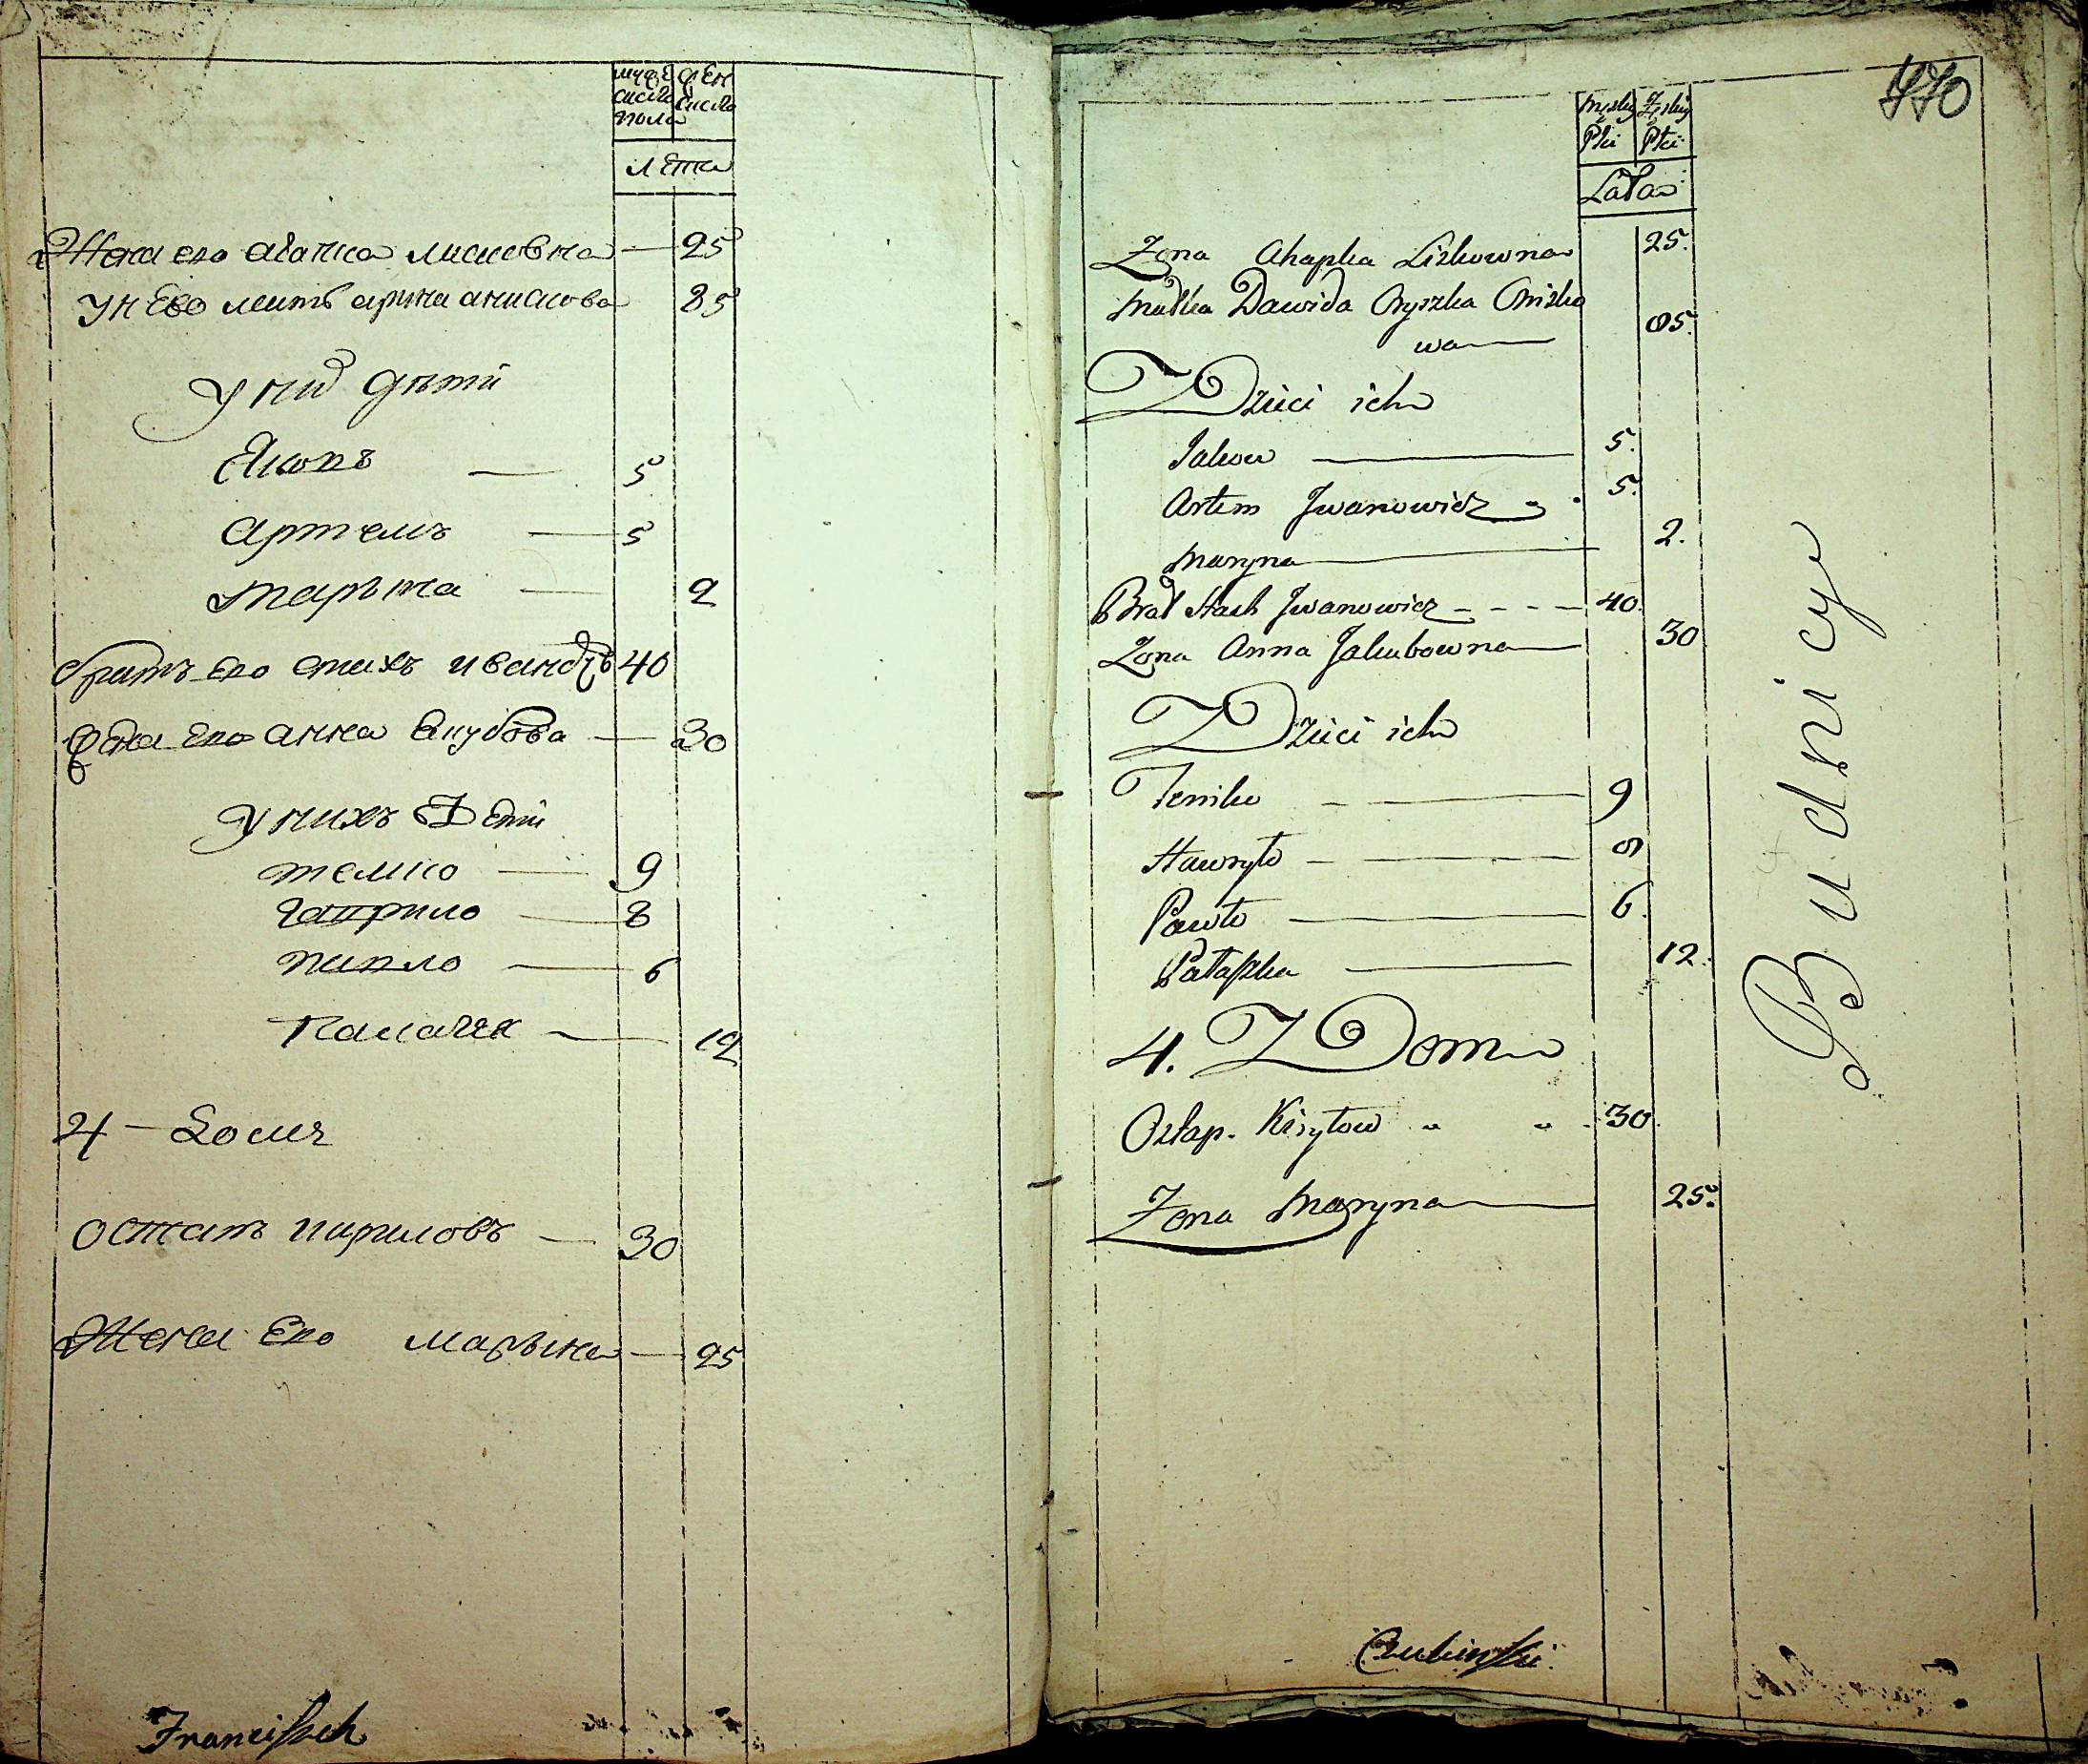 мужеска пола женска
лѣта
Жена его агапка лисковна — 25
У него мать арина анискова 85
У них дѣти
Яковъ — 5
Артемъ — 5
марына — 2
братъ его стахъ иванов 40
жена его анна Якубова — 30
У нихъ Дети
темко — 9
гаврило — 8
павло — 6
Палажка — 12
4 — Домъ
Остапъ кириловъ — 30
Жена Его марына — 25
Franciszek
440
Męskiey Płci Żeńskiey Płci
Lata
Żona Ahapka Liskowna 25.
Matka Dawida Oryszka Onisko
wa — 85.
Dzieci ich
Jakow — 5.
Artem Jwanowicz 5.
Maryna — 2.
Brat Stach Jwanowicz - - - - 40.
Żona Anna Jakubowna — 30
Dzieci ich
Temko — 9
Hawryło — 8
Pawło — 6.
Pałaszka — 12.
4. Dom
Ostap. Kiryłow „ „ 30.
Żona Maryna — 25.
Budnicy